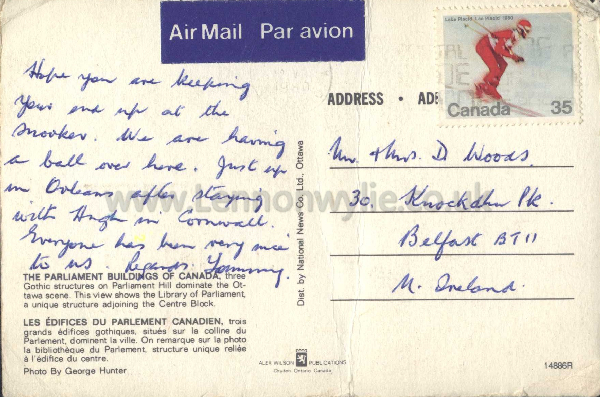 Air Mail Par avion
Lake Placid, Lac Placid 1980
Canada 35
Hope you are keeping
your end up at the
snooker. We are having
a ball over here. Just up
in Orleans after staying
with Hugh in Cornwall.
Everyone has been very nice
to us. Regards Tommy.
THE PARLIAMENT BUILDINGS OF CANADA, three
Gothic structures on Parliament Hill dominate the Ot-
tawa scene. This view shows the Library of Parliament,
a unique structure adjoining the Centre Block.
LES ÉDIFICES DU PARLEMENT CANADIEN, trois
grands édifices gothiques, situés sur le colline du
Parlement, dominent la ville. On remarque sur la photo
la bibliothèque du Parlement, structure unique reliée
à l'édifice du centre.
Photo By George Hunter
Dist. by National News Co. Ltd., Ottawa
ADDRESS • ADR
Mr. & Mrs. D Woods.
30. Knockdhu Pk.
Belfast BT11
N. Ireland.
ALEX WILSON PUBLICATIONS
Dryden Ontario Canada
14886R
www.Lennonwylie.co.uk